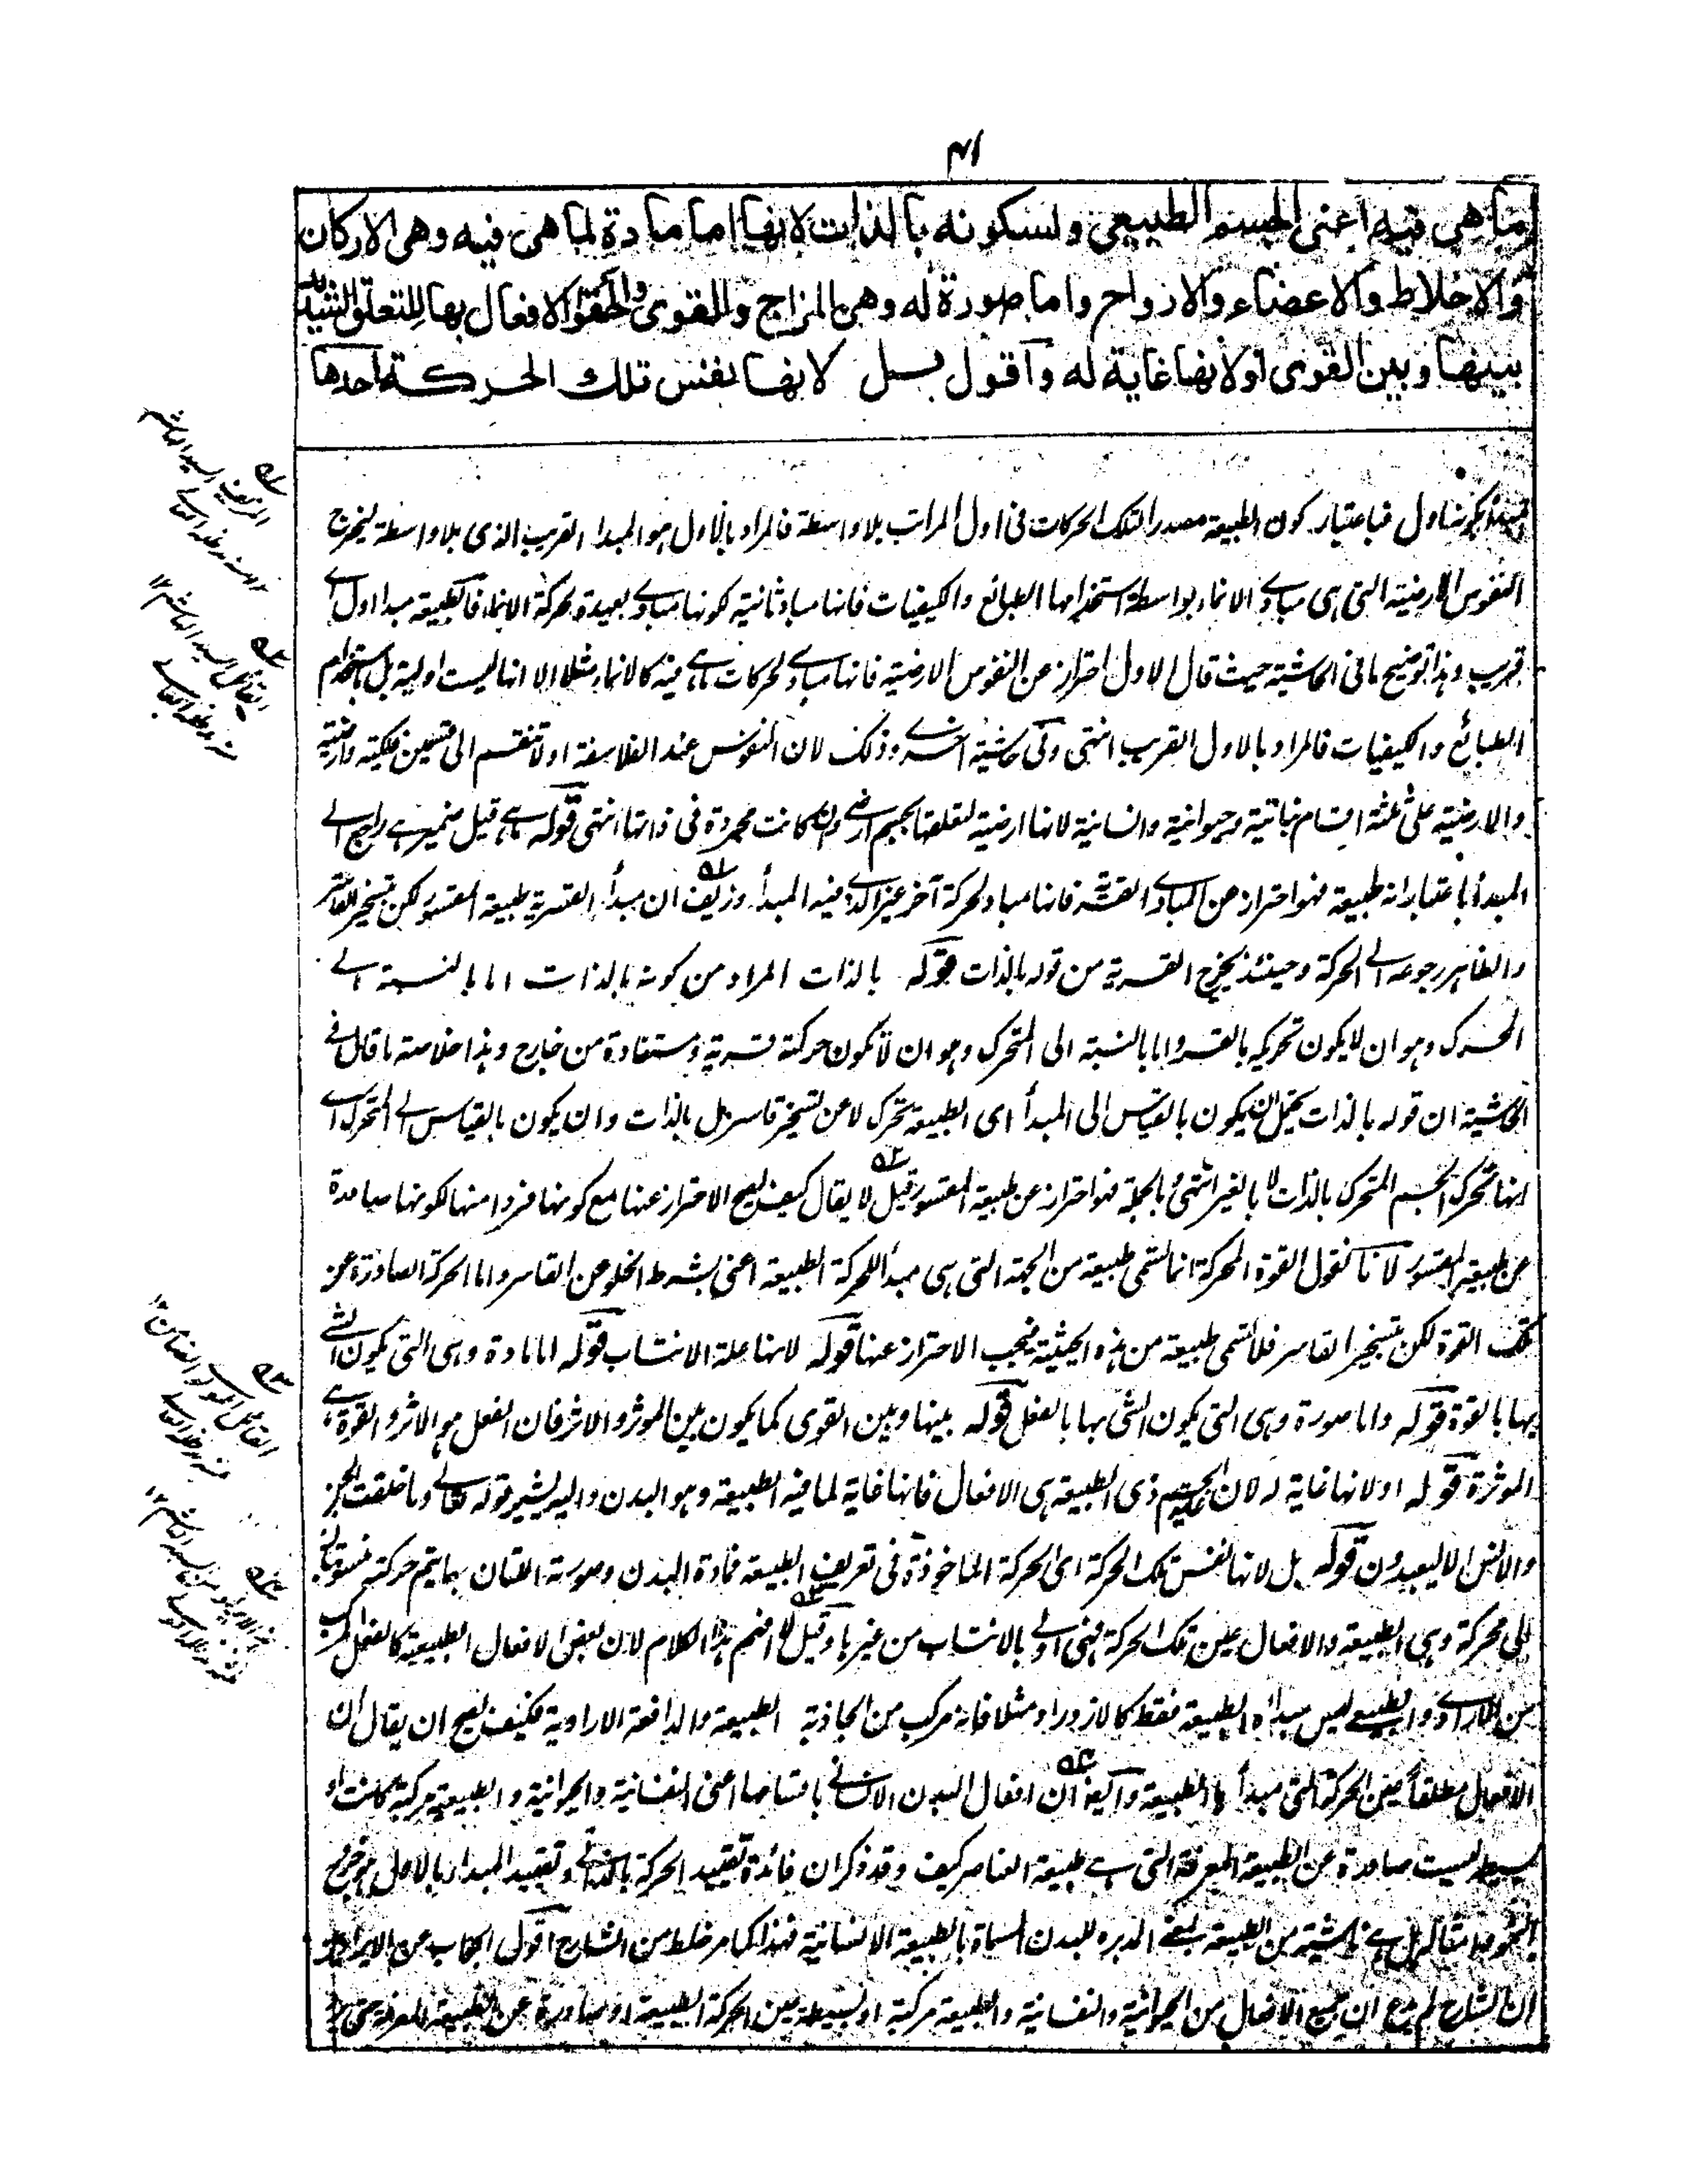 ٤١
ما هى فيه اعنى الجسم الطبيعى ولسكونه بالذات لانها اما مادة لما هى فيه وهى الاركان
والاخلاط والاعضاء والارواح واما صورة له وهى المزاج والقوى والحقوا الافعال بها للتعلق الشديد
بينها وبين القوى اولانها غاية له وأقول بل لانها نفس تلك الحركة احدها
اول فباعتبار كون الطبيعة مصدرا لتلك الحركات فى اول المراتب بلا واسطة فالمراد بالاول هو المبدا القريب الذى بلا واسطة ليخرج
النفوس الارضية التى هى مبادى الانماء بواسطة استخدامها الطبائع والكيفيات فانها مباد ثانية لكونها مبادى بعيدة لحركة الانماء فالطبيعة مبدا اول اى
قريب وهذا توضيح ما فى الحاشية حيث قال الاول احتراز عن النفوس الارضية فانها مبادى لحركات ما هى فيه كالانماء مثلا الا انها ليست اولية بل باستخدام
الطبائع والكيفيات فالمراد بالاول القريب انتهى وفى حاشية اخرى وذلك لان النفوس عند الفلاسفة اولا تنقسم الى قسمين فلكية وارضية
والارضية على ثلثة اقسام نباتية وحيوانية وانسانية لانها ارضية لتعلقها بجسم ارضى وان كانت مجردة فى ذاتها انتهى قوله ما هى قيل ضمير هى راجع الى
المبدأ باعتبار انه طبيعة فهو احتراز عن المبادى القسرية فانها مباد لحركة آخر غير الذى فيه المبدأ وزيف ان مبدأ القسرية طبيعة المقسور لكن بتسخير القاسر
والظاهر رجوعه الى الحركة وحينئذ يخرج القسرية من قوله بالذات قوله بالذات المراد من كونه بالذات اما بالنسبة الى
المحرك وهو ان لا يكون تحريكه بالقسر واما بالنسبة الى المتحرك وهو ان لا تكون حركته قسرية ومستفادة من خارج وهذا خلاصة ما قال فى
الحاشية ان قوله بالذات يحتمل ان يكون بالقياس الى المبدأ اى الطبيعة تحرك لا عن تسخير قاسر بل بالذات وان يكون بالقياس الى المتحرك اى
انها تحرك الجسم المتحرك بالذات لا بالغير انتهى وبالجملة فهو احتراز عن طبيعة المقسور قيل لا يقال كيف يصح الاحتراز عنها مع كونها فردا منها لكونها صادرة
عن طبيعة المقسور لانا نقول القوة المحركة انما تسمى طبيعة من الجهة التى هى مبدأ للحركة الطبيعة اعنى بشرط الخلو عن القاسر واما الحركة الصادرة عن
تلك القوة لكن بتسخير القاسر فلا تسمى طبيعة من هذه الحيثية فيجب الاحتراز عنها قوله لانها علة الانتساب قوله اما مادة وهى التى يكون الشئ
بها بالقوة قوله واما صورة وهى التى يكون الشئ بها بالفعل قوله بينها وبين القوى كما يكون بين المؤثر والاثر فان الفعل هو الاثر والقوة هى
المؤثرة قوله اولانها غاية له لان الجسم ذى الطبيعة هى الافعال فانها غاية لما فيه الطبيعة وهو البدن واليه يشير قوله تعالى وما خلقت الجن
والانس الا ليعبدون قوله بل لانها نفس تلك الحركة اى الحركة الماخوذة فى تعريف الطبيعة فمادة البدن وصورته اللتان بهما يتم حركته منسوبتان
الى محركة وهى الطبيعة والافعال عين تلك الحركة فهى اولى بالانتساب من غيرها وقيل لا افهم هذا الكلام لان بعض الافعال الطبيعية كالفعل المركب
من الارادى والطبيعى ليس مبداه الطبيعة فقط كالازدراد مثلا فانه مركب من الجاذبة الطبيعة والدافعة الارادية فكيف يصح ان يقال ان
الافعال مطلقا عين الحركة التى مبدأها الطبيعة وايضا ان افعال البدن الانسانى باقسامها اعنى النفسانية والحيوانية والطبيعية مركبة كانت او
بسيطة ليست صادرة عن الطبيعة المعرفة التى هى طبيعة العناصر كيف وقد ذكر ان فائدة تقييد الحركة بالذاتى وتقييد المبدا بالاول هو خروج
من الطبيعة بمعنى المدبرة للبدن المسماة بالطبيعة الانسانية فهذا كما مر خلط من الشارح اقول الجواب عن الايراد
ان الشارح لم يدع ان جميع الافعال من الحيوانية والنفسانية والطبيعة مركبة او بسيطة عين الحركة الطبيعية او صادرة عن الطبيعة المعرفة حتى يرد